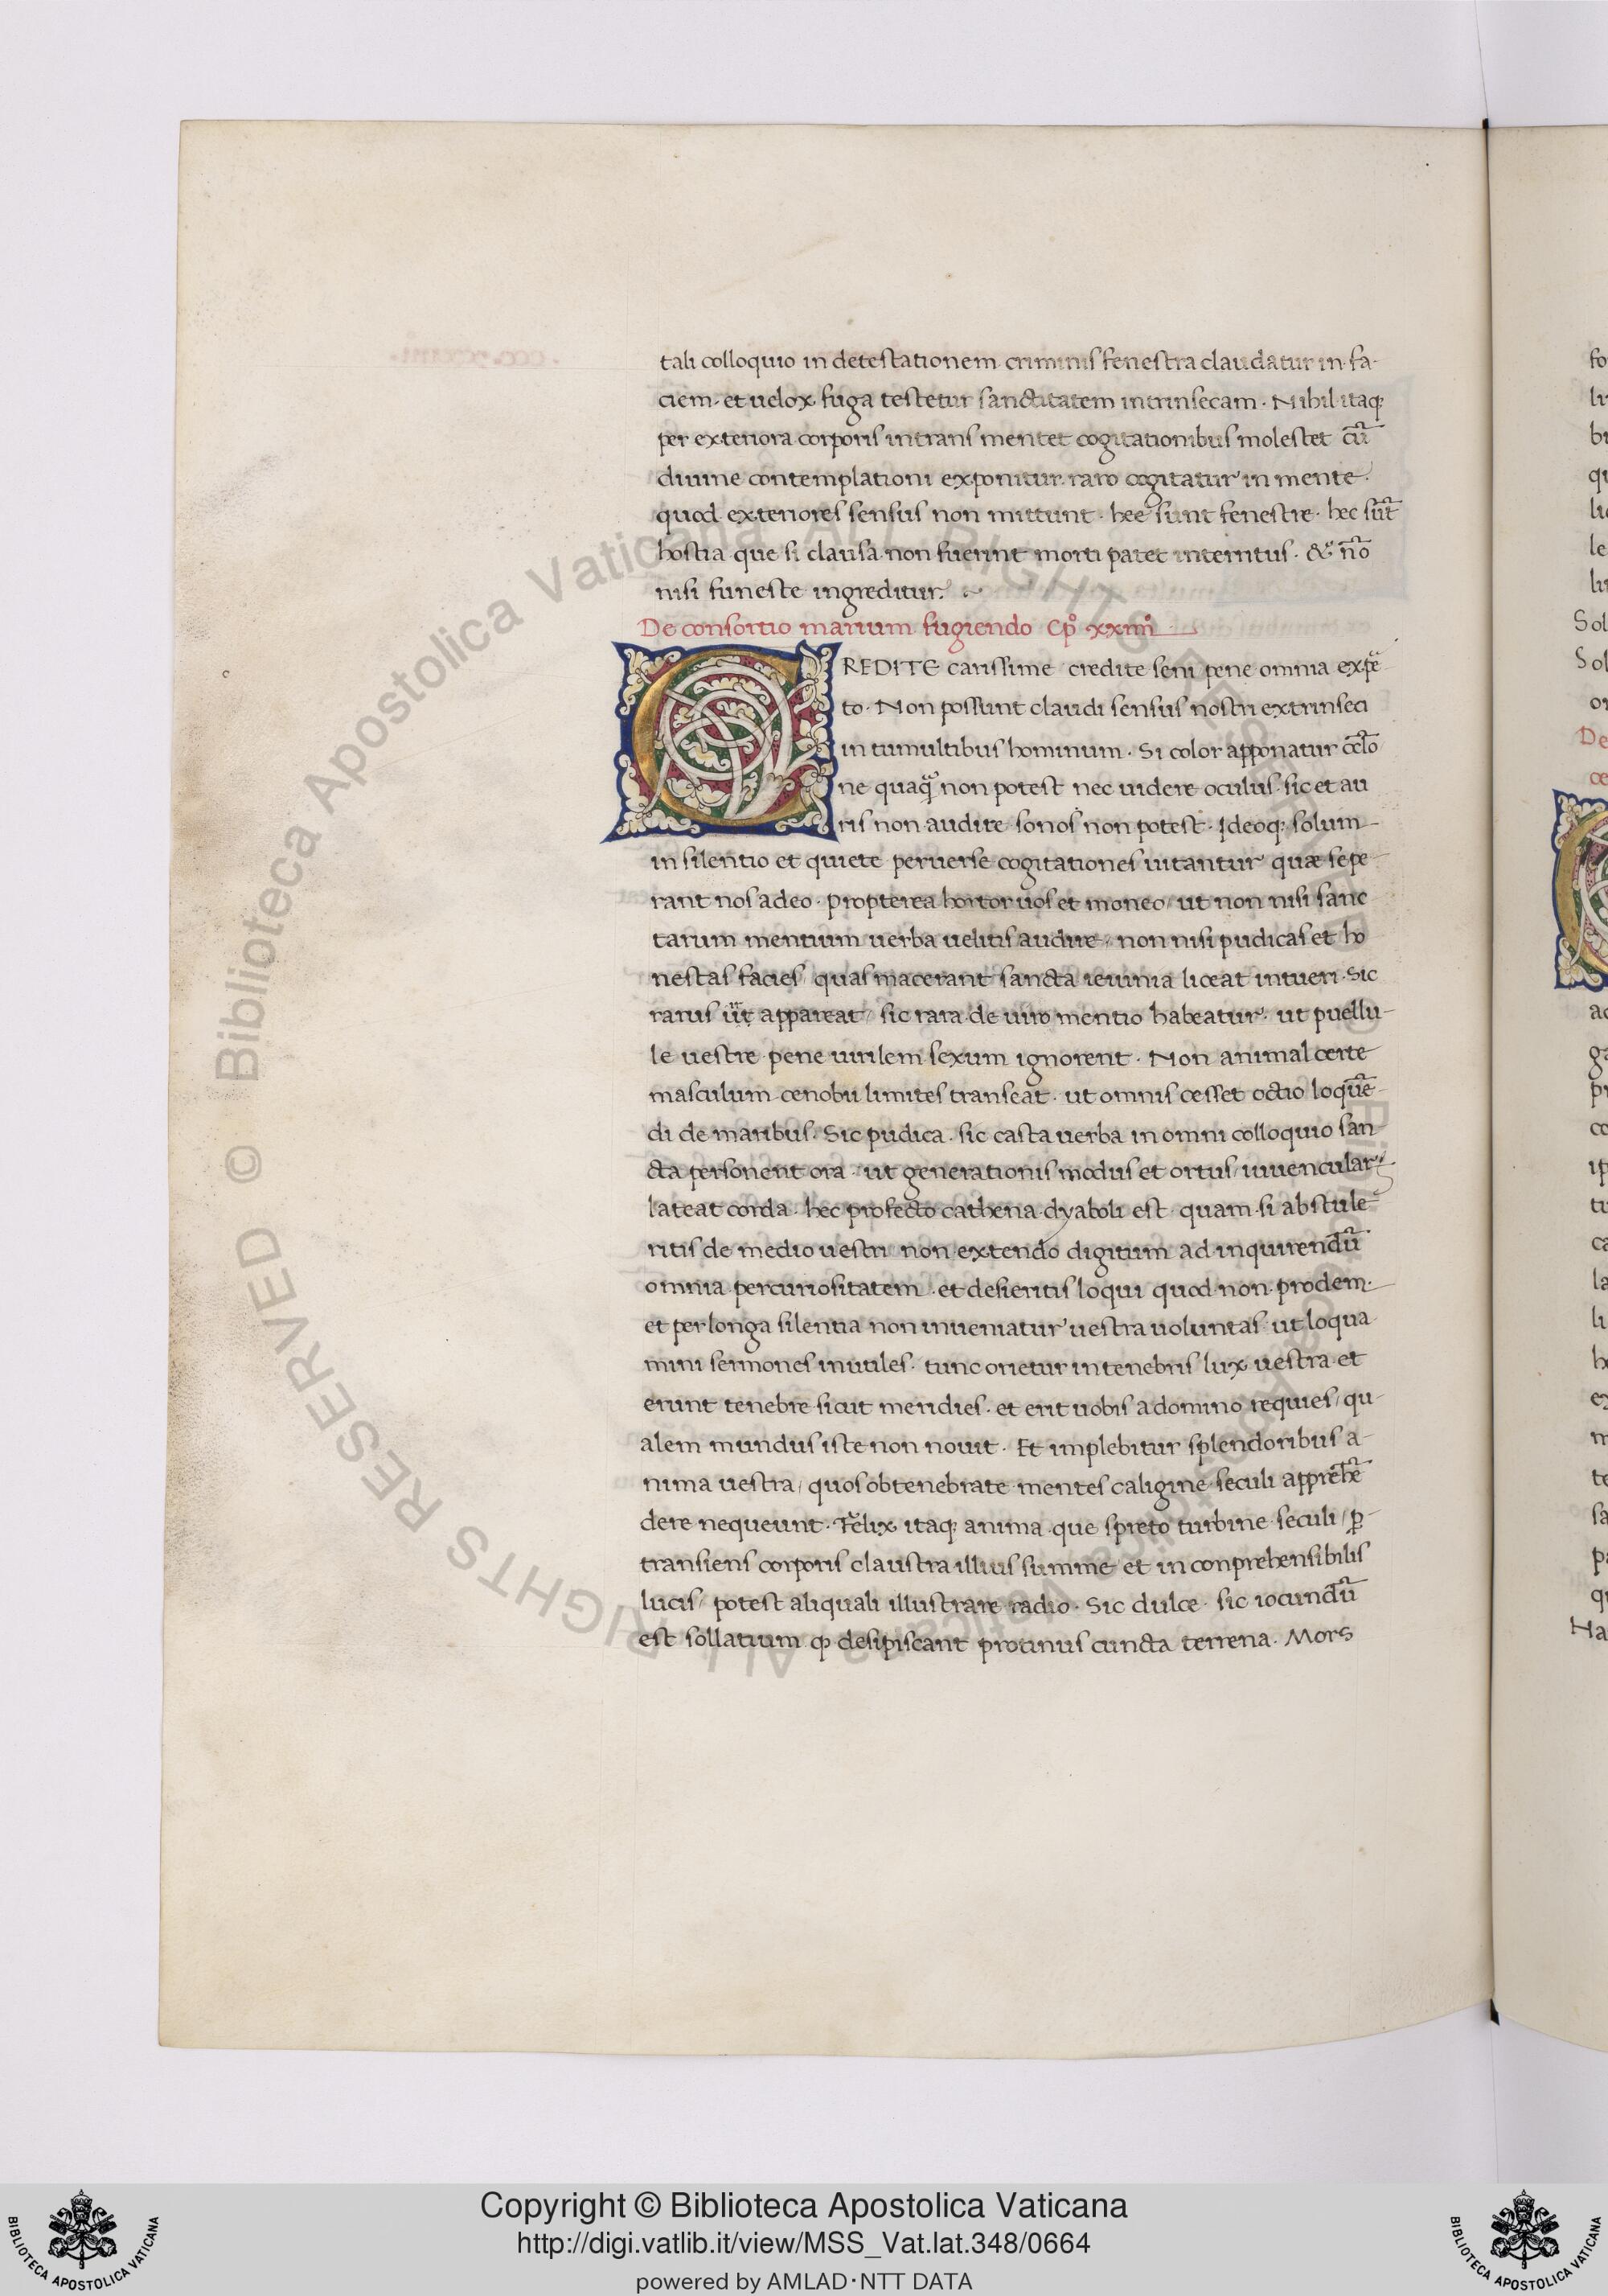 tali colloquio in detestationem criminis fenestra claudatur in fa-
ciem. et uelox fuga testetur sanctitatem intrinsecam. Nihil itaq;
per exteriora corporis intrans mentet cogitationibus molestet cũ
diuine contemplationi exponitur. raro cogitatur in mente
quod exteriores sensus non mittunt. hee sunt fenestre. hec sũt
hostia que si clausa non fuerint morti patet interritus. &
nisi funeste ingreditur.
De consortio marium fugiendo Cp̃o xxiiii
CREDITE carissime credite seni pene omnia expẽ
to. Non possunt claudi sensus nostri extrinseci
in tumultibus hominum. Si color apponatur
ne quaq̃ non potest nec uidere oculus. sic et au
ris non audire sonos non potest. Ideoq; solum
in silentio et quiete peruerse cogitationes uitantur quæ sepe
rant nos adeo. propterea hortor uos et moneo / ut non nisi sanc
tarum mentium uerba uelitis audire / non nisi pudicas et ho
nestas facies / quas macerant sancta ieiunia liceat intueri. Sic
rarus appareat / sic rara de uiro mentio habeatur. ut puellu-
le uestre pene uirilem sexum ignorent. Non animal certe
masculum cenobii limites transeat. ut omnis cesset octio loquẽ-
di de maribus. Sic pudica. sic casta uerba in omni colloquio san
cta personent ora. ut generationis modus et ortus / iuuencular
lateat corda. hec profecto cathena dyaboli est. quam si abstule
ritis de medio uestri non extendo digitum ad inquirendũ
omnia per curiositatem. et desieritis loqui quod non prodem.
et per longa silentia non inueniatur uestra uoluntas ut loqua
mini sermones inutiles. tunc orietur in tenebris lux uestra et
erunt tenebre sicut meridies. et erit uobis a domino requies / qu-
alem mundus iste non nouit. Et implebitur splendoribus a-
nima uestra / quos obtenebrate mentes caligine seculi apprehẽ
dere nequeunt. Felix itaq; anima que spreto turbine seculi / ꝑ-
transiens corporis claustra illius summe et inconprehensibilis
lucis / potest aliquali illustrare radio. Sic dulce. sic iocundũ
est sollatium ꝙ desipiscant protinus cuncta terrena. Mors
Copyright © Biblioteca Apostolica Vaticana
http://digi.vatlib.it/view/MSS_Vat.lat.348/0664
powered by AMLAD·NTT DATA
BIBLIOTECA APOSTOLICA VATICANA
BIBLIOTECA APOSTOLICA VATICANA
© Biblioteca Apostolica Vaticana ALL RIGHTS RESERVED